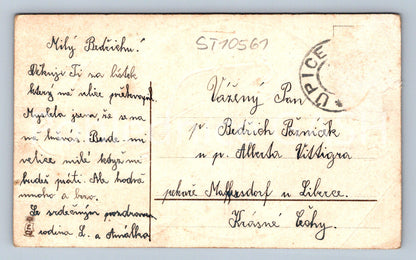 Milý Bedřichu!
ST10561
ÚPICE
Děkuji Ti za lístek
který mě velice překvapil.
Myslela jsem, že se na
mě hněváš. Bude mi
velice milé když mi
budeš psáti. Ale hodně
mnoho a brzo.
Se srdečným pozdravem
rodina L. a Amálka
Vážený Pan
p. Bedřich Pažniák
u p. Alberta Vittigra
pekaře Maffersdorf u Liberce.
Krásné Čechy.